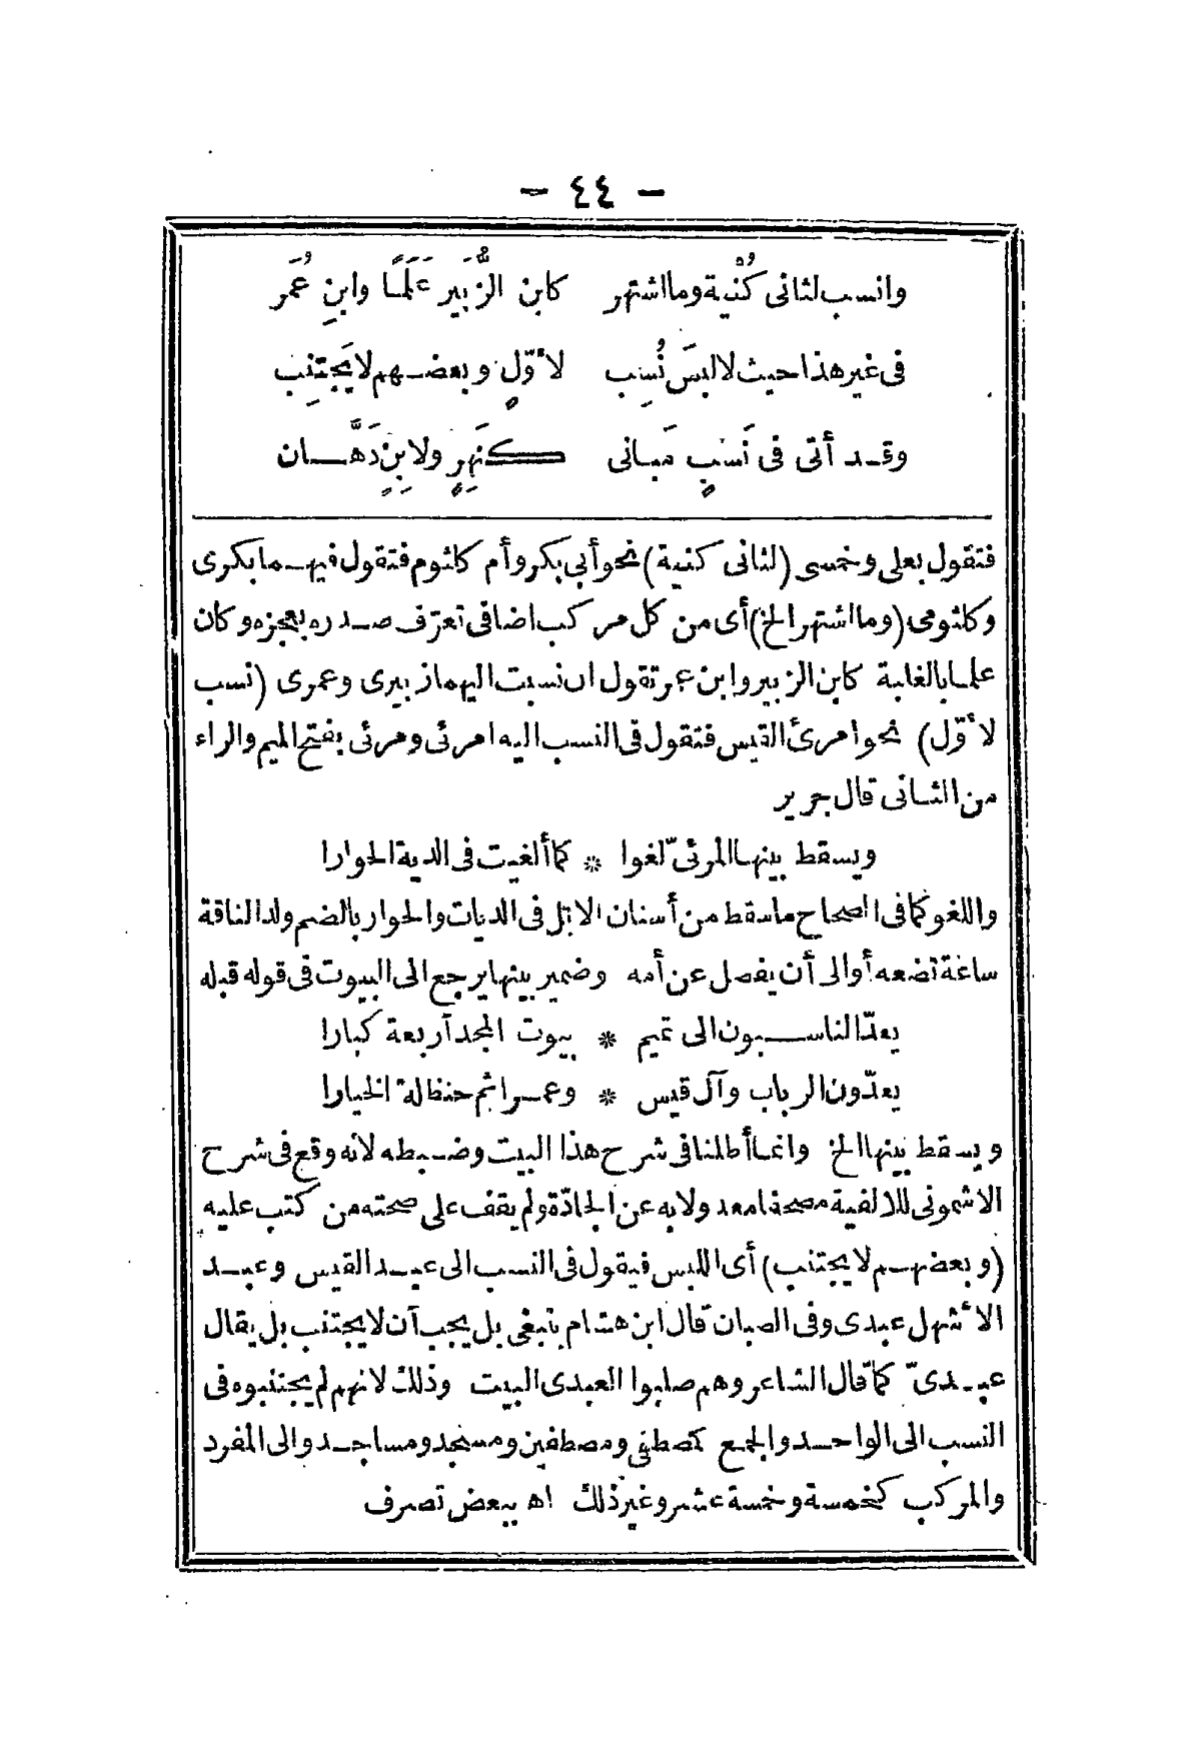 — ٤٤ —
وانسب لثانى كُنْية وما اشتهر كابن الزُّبَير عَلَمًا وابنِ عُمَر
فى غير هذا حيث لا لبسَ نُسِب لأوّلٍ وبعضهم لا يَجتِنِب
وقد أتى فى نَسَبٍ مَبانى كنَهِرٍ ولابِنٍ دَهَّان
فتقول بعلى وخمسى (لثانى كنية) نحو أبي بكر وأم كلثوم فتقول فيهما بكرى
وكلثومى (وما اشتهر الخ) أى من كل مركب اضافى تعرّف صدره بعجزه وكان
علما بالغلبة كابن الزبير وابن عمر تقول ان نسبت اليهما زبيرى وعمرى (نسب
لأوّل) نحو امرئ القيس فتقول فى النسب اليه امرئى ومرئى بفتح الميم والراء
من الثانى قال جرير
ويسقط بينها المرئىّ لغوا * كما ألغيت فى الدية الحوارا
واللغو كما فى الصحاح ما سقط من أسنان الابل فى الديات والحوار بالضم ولد الناقة
ساعة تضعه أو الى أن يفصل عن أمه وضمير بينها يرجع الى البيوت فى قوله قبله
يعدّ الناسبون الى تميم * بيوت المجد أربعة كبارا
يعدّون الرباب وآل قيس * وعمرا ثم حنظلة الخيارا
ويسقط بينها الخ وانما أطلنا فى شرح هذا البيت وضبطه لانه وقع فى شرح
الاشمونى للالفية مصحفا معدولا به عن الجادّة ولم يقف على صحته من كتب عليه
(وبعضهم لا يجتنب) أى اللبس فيقول فى النسب الى عبد القيس وعبد
الأشهل عبدى وفى الصبان قال ابن هشام ينبغى بل يجب أن لا يجتنب بل يقال
عبدىّ كما قال الشاعر وهم صلبوا العبدى البيت وذلك لانهم لم يجتنبوه فى
النسب الى الواحد والجمع كمصطفى ومصطفين ومسجد ومساجد والى المفرد
والمركب كخمسة وخمسة عشر وغير ذلك اه ببعض تصرف